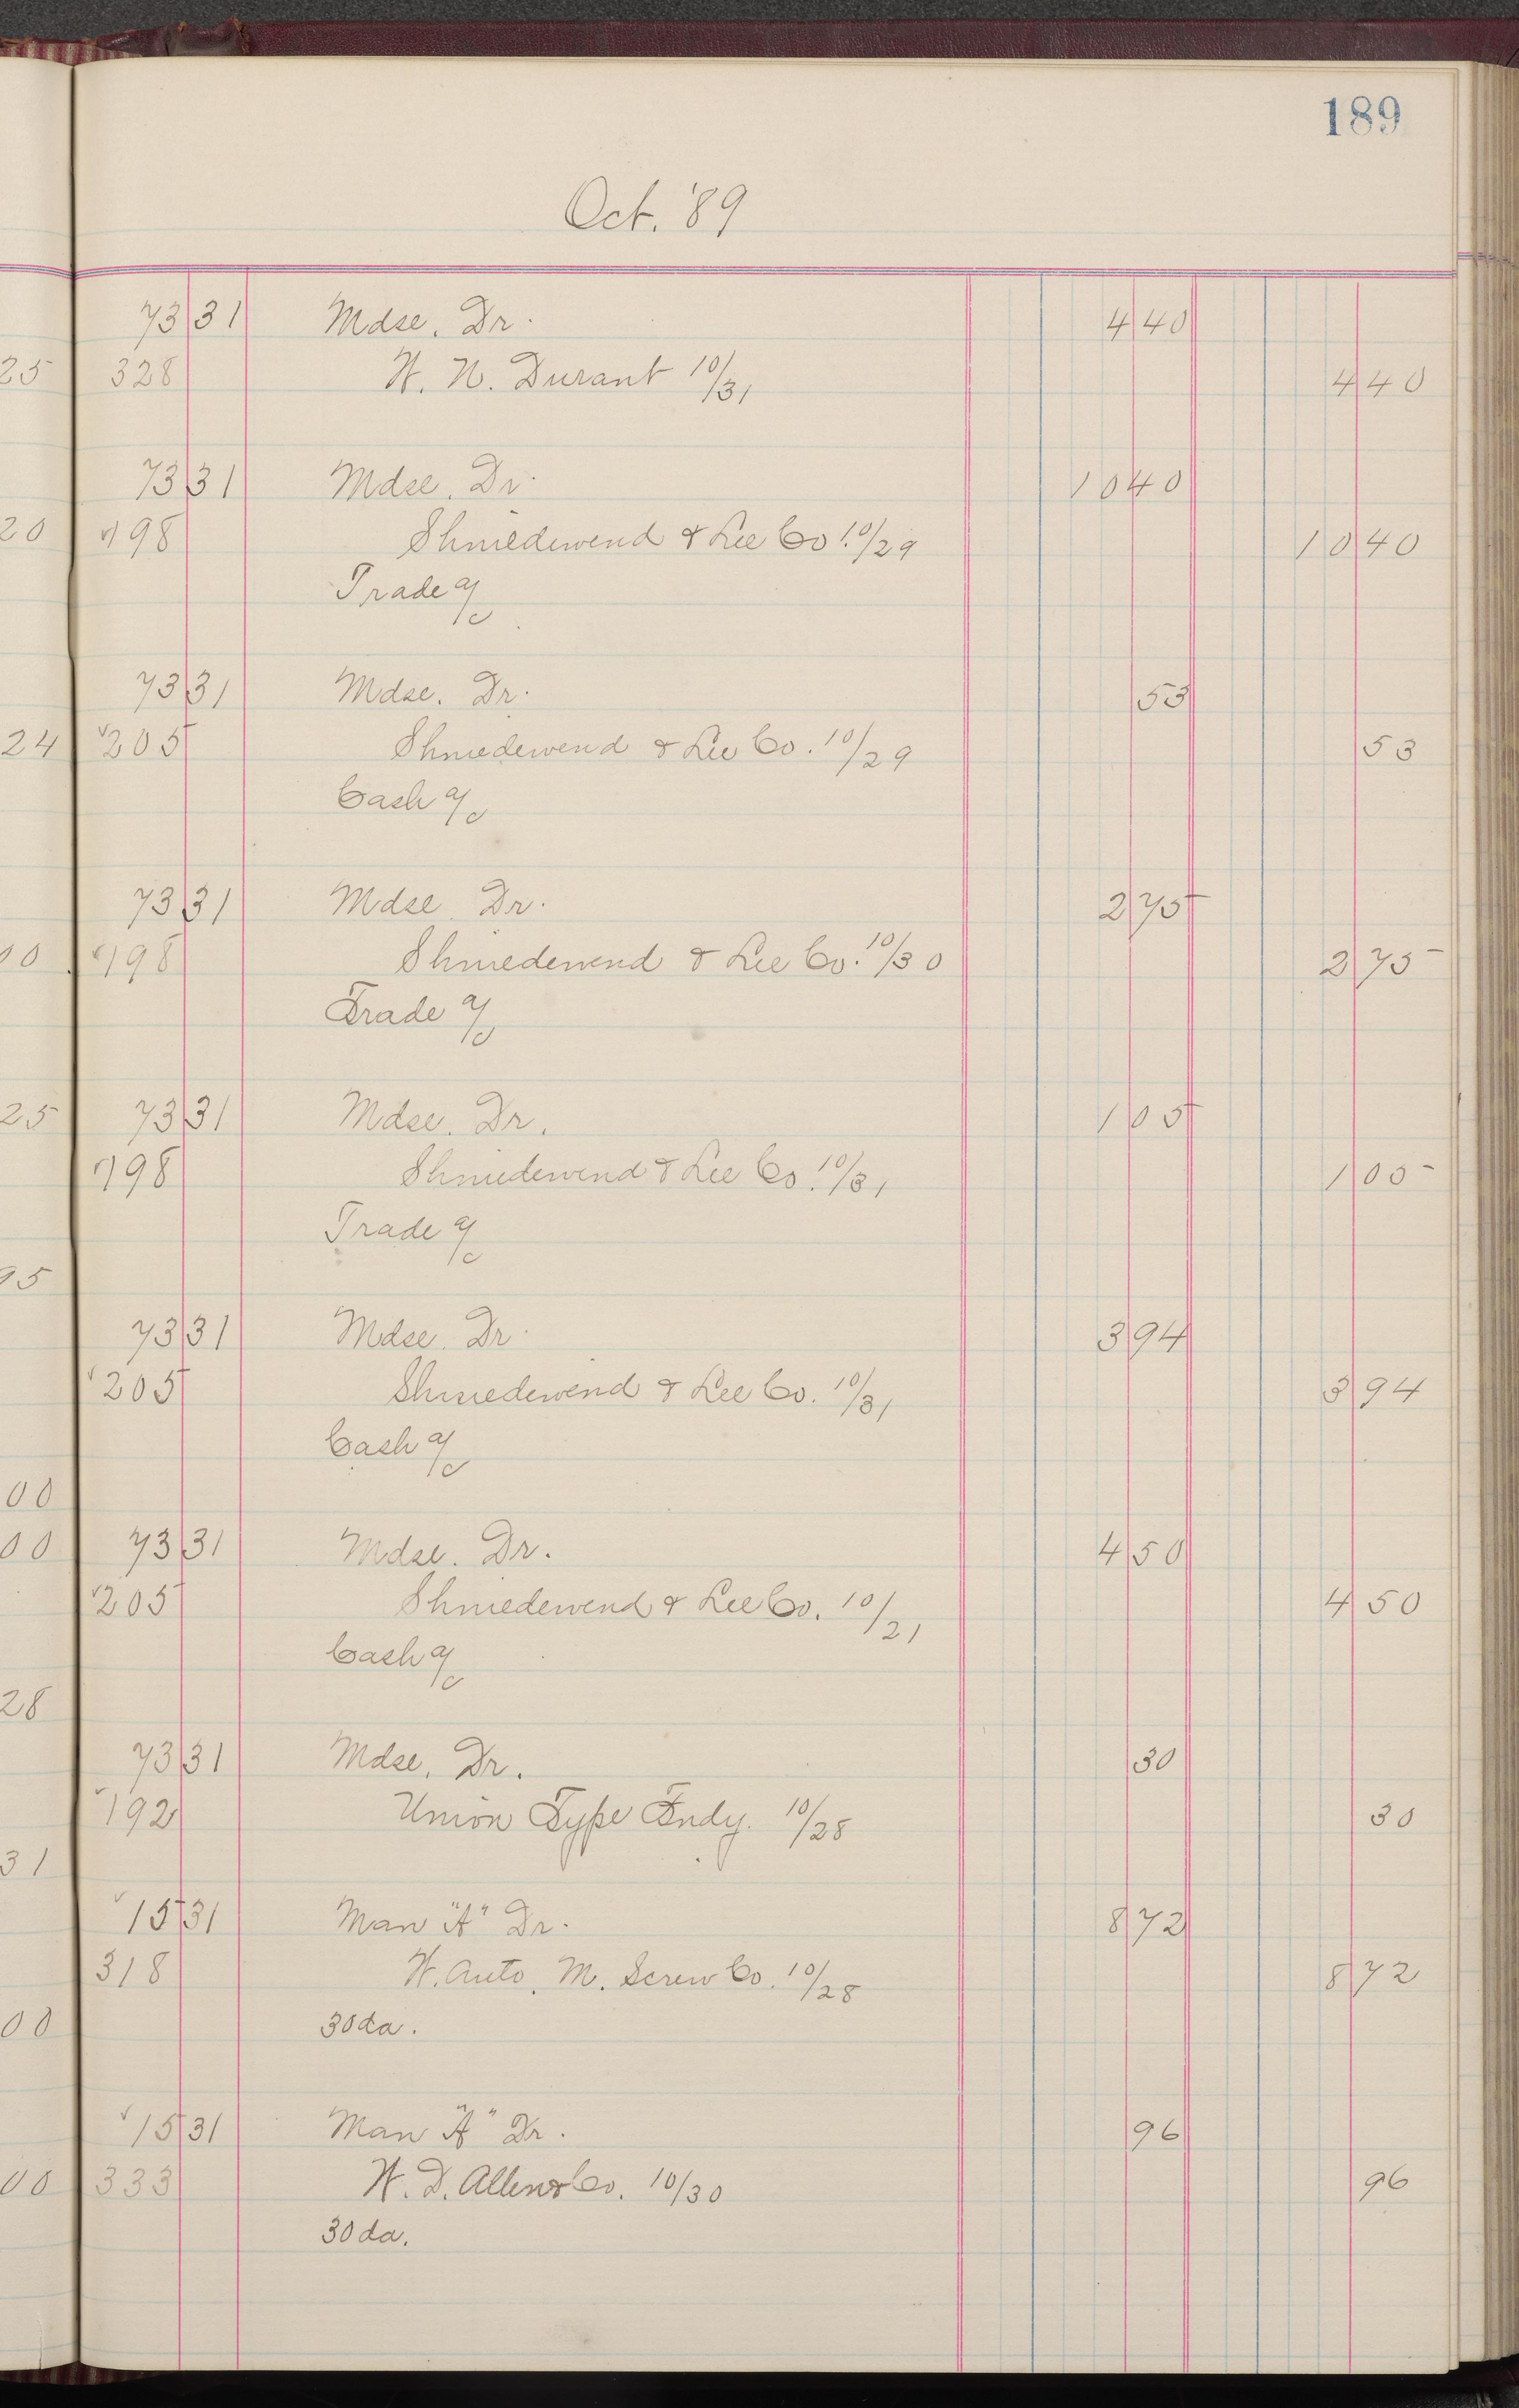 189
Oct. '89
25
20
24
00
25
95
00
00
28
31
00
00
73 31 Mdse. Dr. 4 40
328 W. N. Durant 10/31 4 40
73 31 Mdse. Dr. 10 40
198 Shniedewend & Lee Co. 10/29 10 40
Trade a/c
73 31 Mdse. Dr. 53
205 Shniedewend & Lee Co. 10/29 53
Cash a/c
73 31 Mdse. Dr. 2 75
198 Shniedewend & Lee Co. 10/30 2 75
Trade a/c
73 31 Mdse. Dr. 1 05
198 Shniedewend & Lee Co. 10/31 1 05
Trade a/c
73 31 Mdse. Dr. 3 94
205 Shniedewend & Lee Co. 10/31 3 94
Cash a/c
73 31 Mdse. Dr. 4 50
205 Shniedewend & Lee Co. 10/21 4 50
Cash a/c
73 31 Mdse. Dr. 30
192 Union Type Fndy. 10/28 30
15 31 Man "A" Dr. 8 72
318 W. Auto. M. Screw Co. 10/28 8 72
30 da.
15 31 Man "A" Dr. 96
333 W. D. Allen & Co. 10/30 96
30 da.